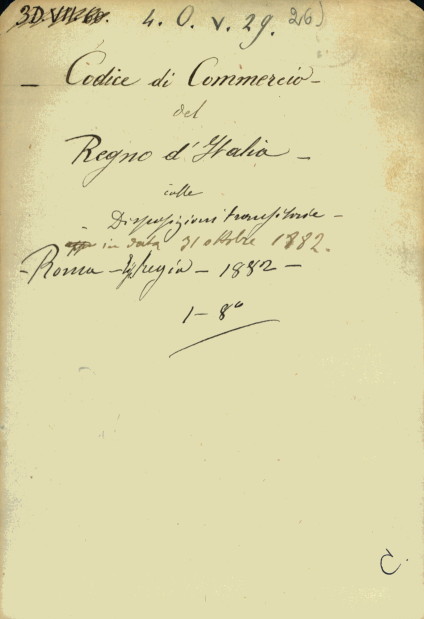 3D.VII.60. 4. O. v. 29. 26)
- Codice di Commercio -
del
Regno d'Italia -
colle
- Disposizioni transitorie -
in data 31 ottobre 1882.
- Roma - Regia - 1882 -
1 - 8°
C.